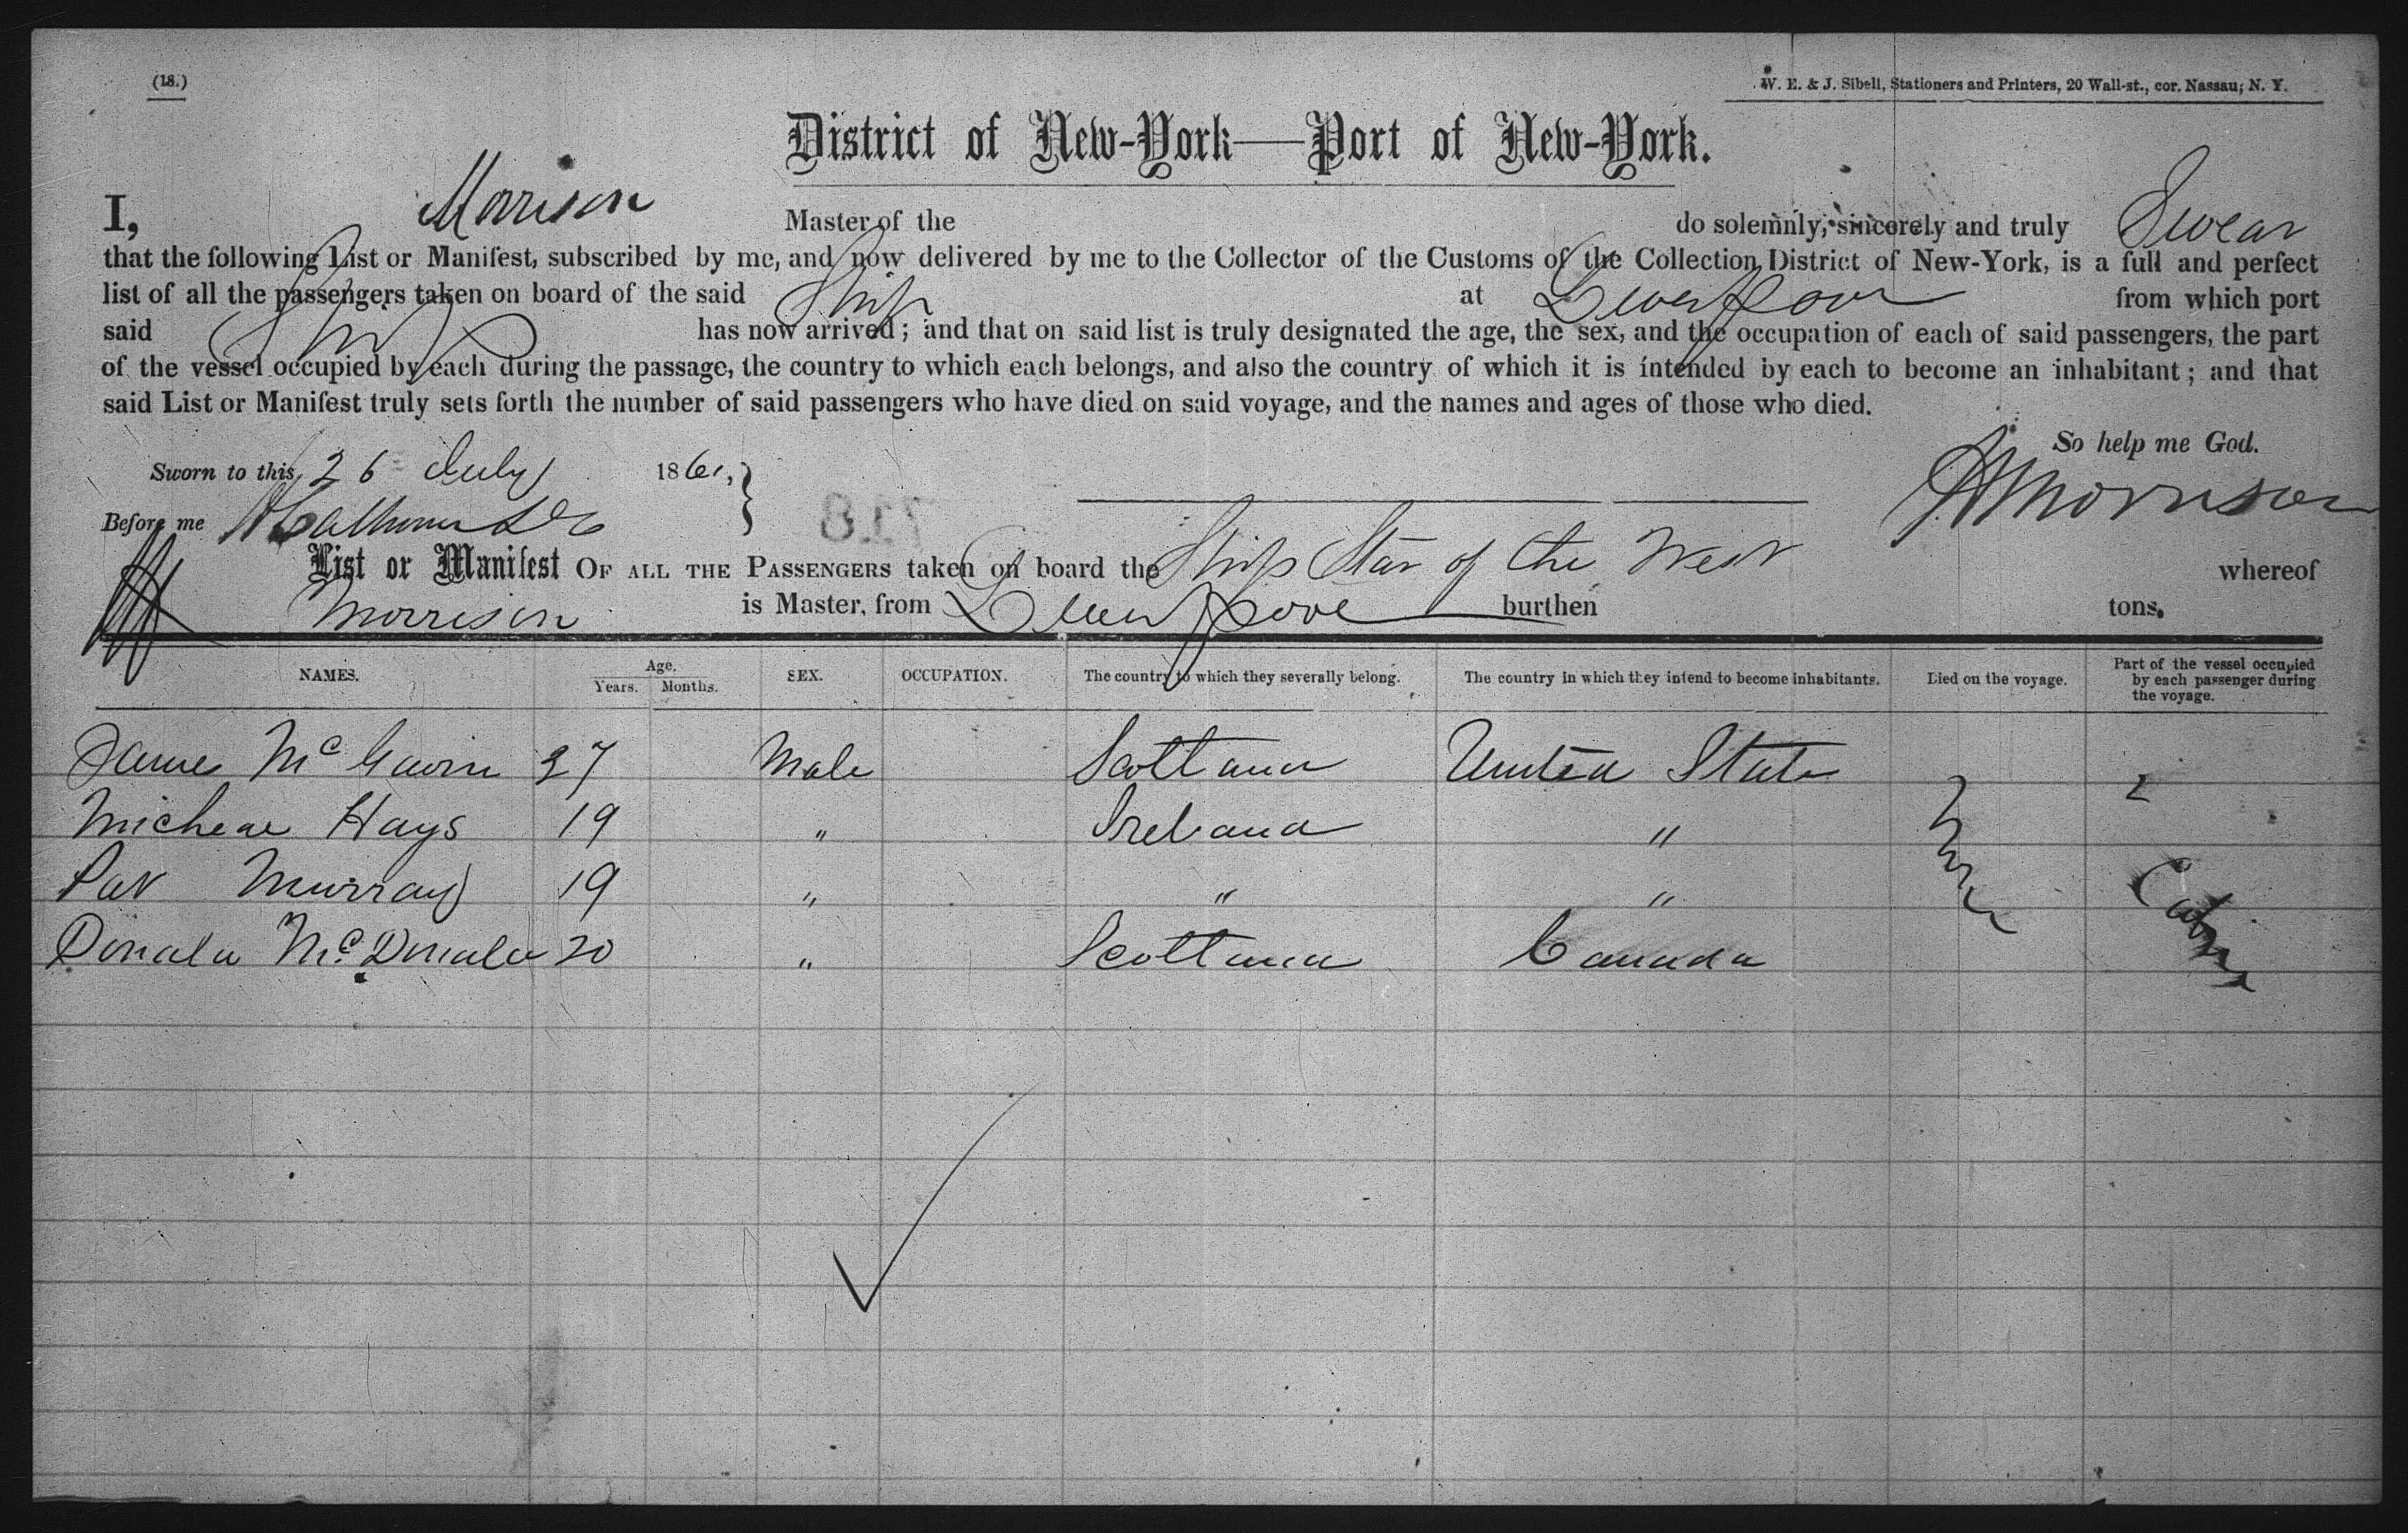 (18.)
W. E. & J. Sibell, Stationers and Printers, 20 Wall-st., cor. Nassau, N. Y.
District of New-York—Port of New-York.
I, Morrison Master of the do solemnly, sincerely and truly Swear
that the following List or Manifest, subscribed by me, and now delivered by me to the Collector of the Customs of the Collection District of New-York, is a full and perfect
list of all the passengers taken on board of the said Ship at Liverpool from which port
said Ship has now arrived; and that on said list is truly designated the age, the sex, and the occupation of each of said passengers, the part
of the vessel occupied by each during the passage, the country to which each belongs, and also the country of which it is intended by each to become an inhabitant; and that
said List or Manifest truly sets forth the number of said passengers who have died on said voyage, and the names and ages of those who died.
So help me God.
Sworn to this 26 July 1861,
Morrison
Before me
718
List or Manifest OF ALL THE PASSENGERS taken on board the Ship Star of the West whereof
Morrison is Master, from Liverpool burthen tons.
NAMES. Age. Years. Months. SEX. OCCUPATION. The country to which they severally belong. The country in which they intend to become inhabitants. Died on the voyage. Part of the vessel occupied by each passenger during the voyage.
James Mc Gavin 27 Male Scotland United States
Micheal Hays 19 " Ireland "
Pat Murray 19 " " " None Cabin
Donald Mc Donald 20 " Scotland Canada